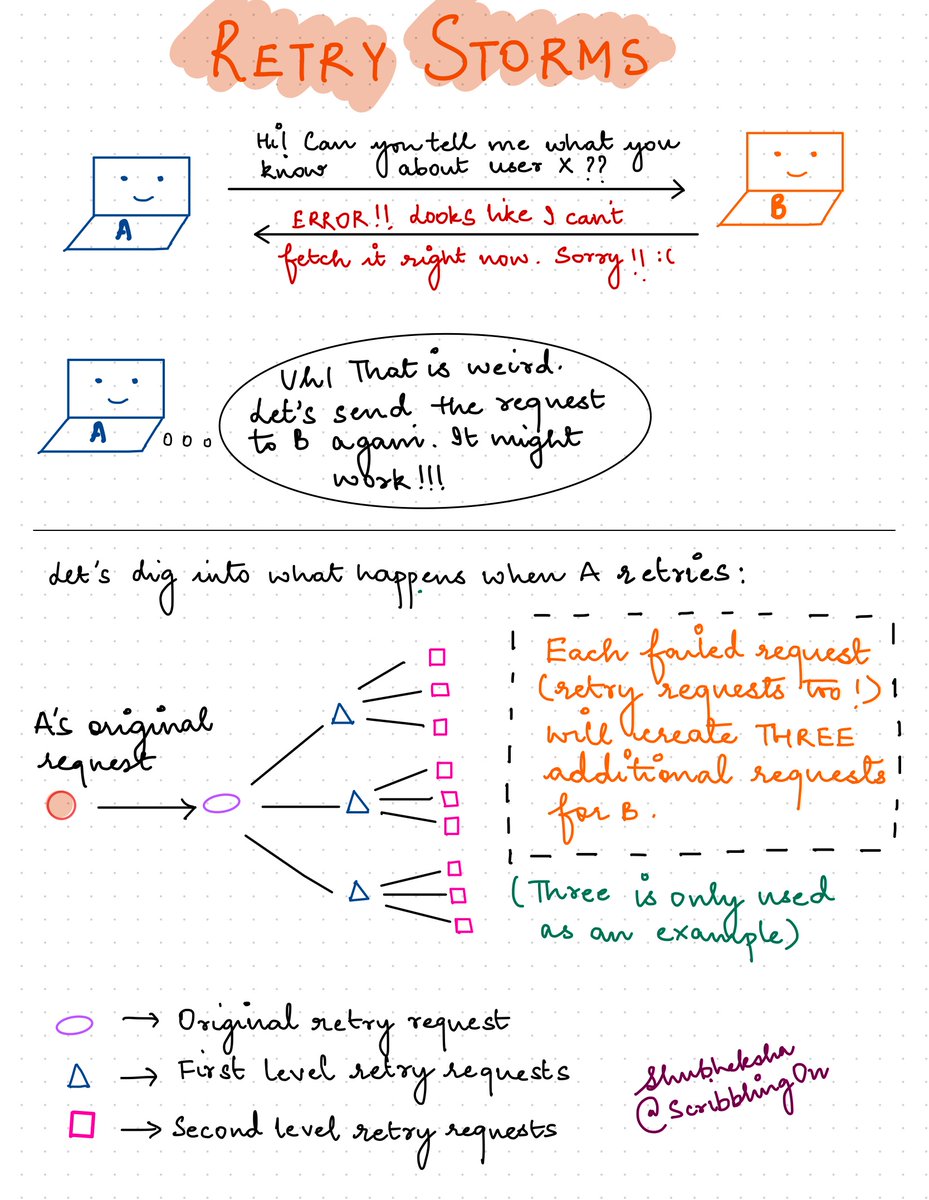 RETRY STORMS
Hi! Can you tell me what you
know about user X ??
ERROR!! Looks like I can't
fetch it right now. Sorry!! :(
A
B
Uh! That is weird.
Let's send the request
to B again. It might
work!!!
A
Let's dig into what happens when A retries:
A's original
request
Each failed request
(retry requests too!)
will create THREE
additional requests
for B.
(Three is only used
as an example)
→ Original retry request
→ First level retry requests
→ Second level retry requests
Shubheksha
@ScribblingOn